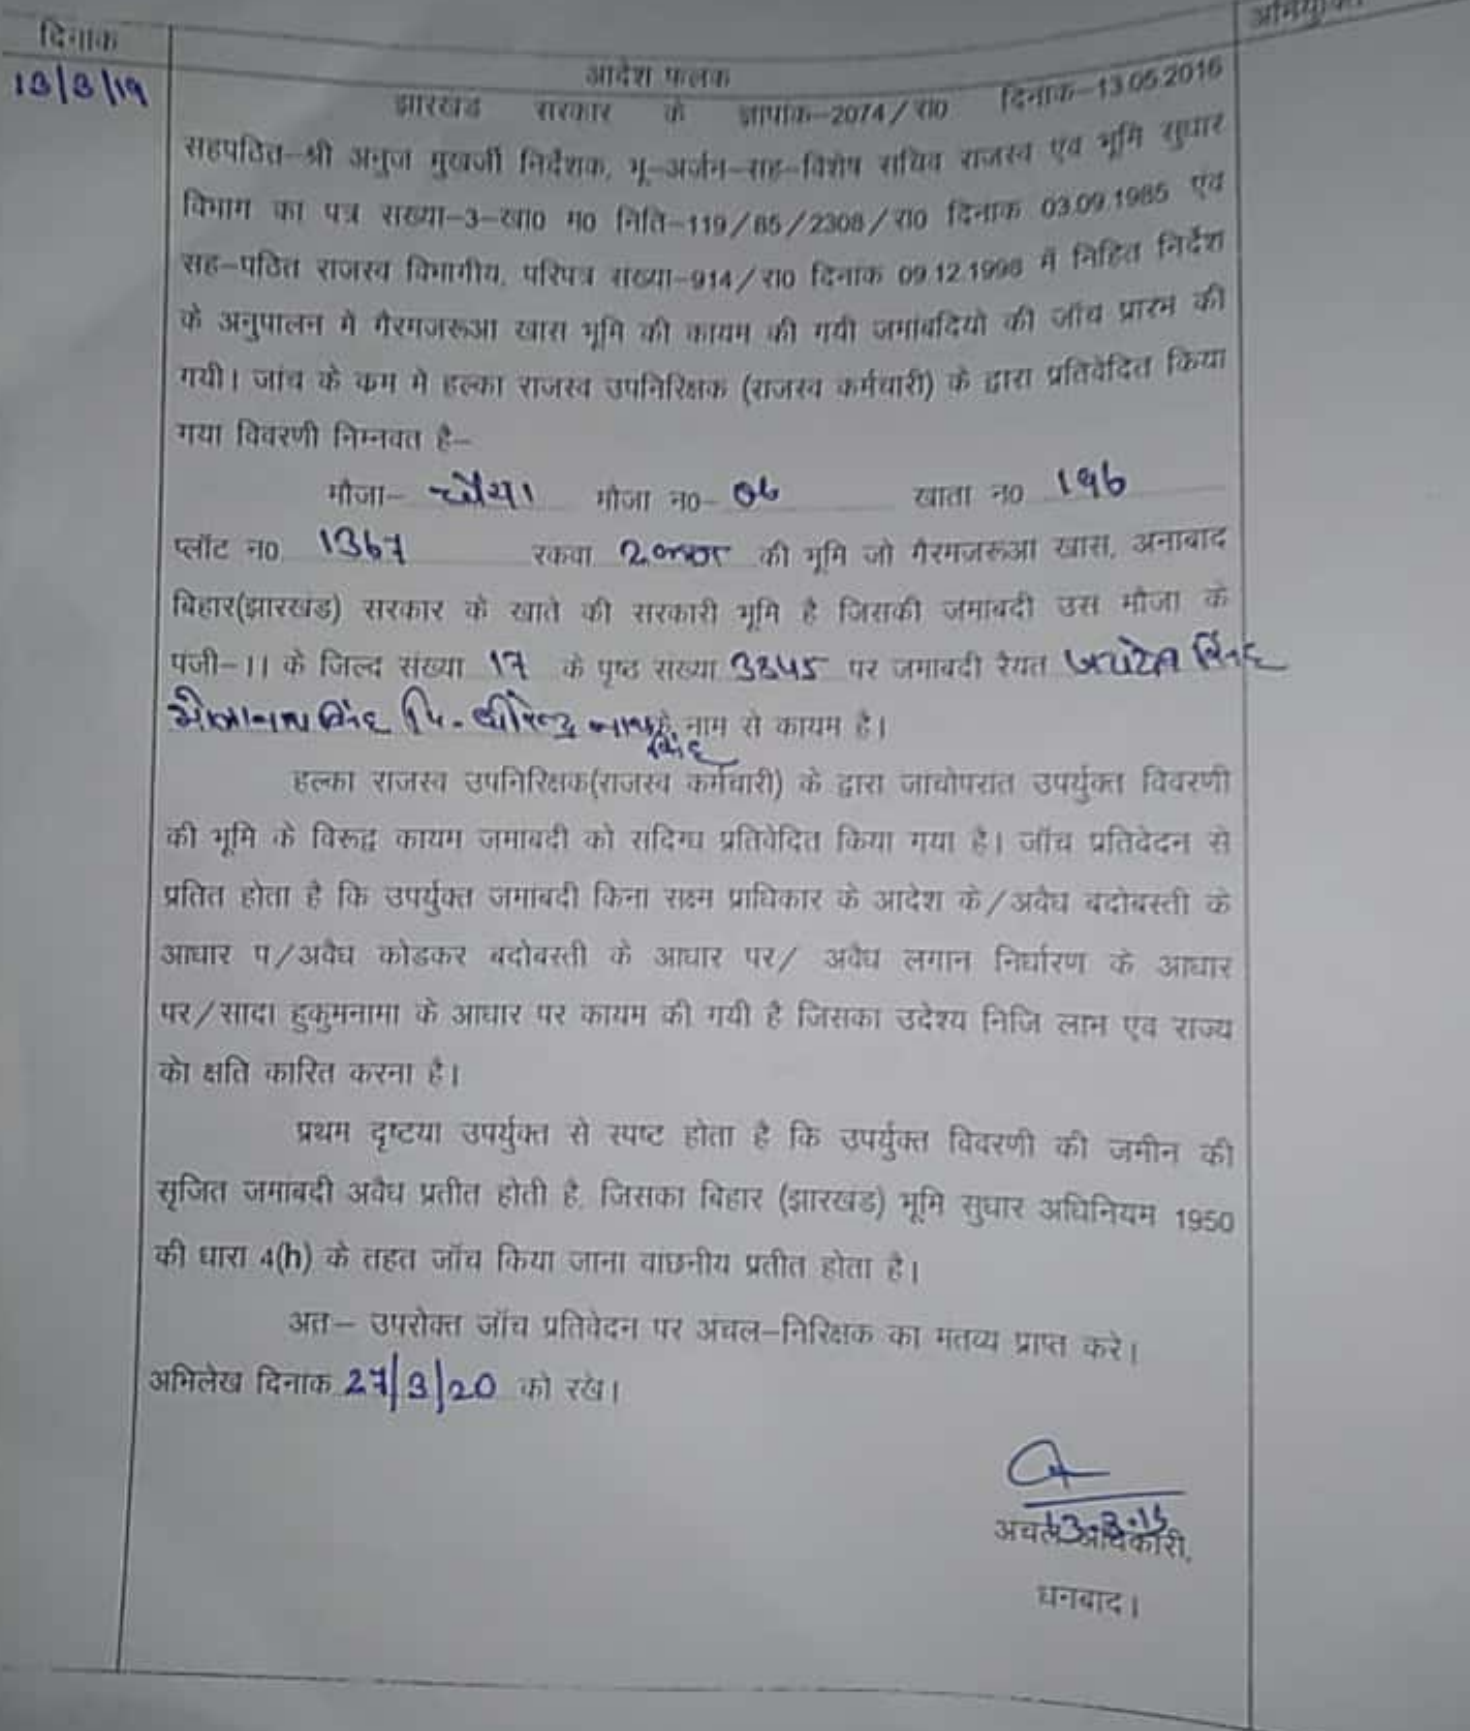 दिनांक
आदेश फलक
13/3/19
झारखंड सरकार के ज्ञापांक-2074/रा0 दिनांक-13.05.2016
सहपठित-श्री अनुज मुखर्जी निर्देशक, भू-अर्जन-सह-विशेष सचिव राजस्व एवं भूमि सुधार
विभाग का पत्र संख्या-3-खा0 म0 निति-119/85/2308/रा0 दिनांक 03.09.1985 एवं
सह-पठित राजस्व विभागीय, परिपत्र संख्या-914/रा0 दिनांक 09.12.1998 में निहित निर्देश
के अनुपालन मे गैरमजरूआ खास भूमि की कायम की गयी जमांबदियो की जॉच प्रारंभ की
गयी। जांच के कम मे हल्का राजस्व उपनिरिक्षक (राजस्व कर्मचारी) के द्वारा प्रतिवेदित किया
गया विवरणी निम्नवत है-
मौजा- मौजा न0- 06 खाता न0 196
प्लॉट न0 1367 रकवा की भूमि जो गैरमजरूआ खास, अनाबाद
बिहार(झारखंड) सरकार के खाते की सरकारी भूमि है जिसकी जमांबदी उस मौजा के
पंजी-।। के जिल्द संख्या 17 के पृष्ठ संख्या 3845 पर जमाबंदी रैयत सिंह
सिंह पि. धीरेन्द्र नाथ सिंह के नाम से कायम है।
हल्का राजस्व उपनिरिक्षक(राजस्व कर्मचारी) के द्वारा जांचोपरांत उपर्युक्त विवरणी
की भूमि के विरूद्व कायम जमाबदी को संदिग्ध प्रतिवेदित किया गया है। जॉच प्रतिवेदन से
प्रतित होता है कि उपर्युक्त जमांबदी किना सक्ष्म प्राधिकार के आदेश के/अवैध बंदोबस्ती के
आधार प/अवैध कोडकर बंदोबस्ती के आधार पर/ अवैध लगान निर्धारण के आधार
पर/सादा हुकुमनामा के आधार पर कायम की गयी है जिसका उदेश्य निजि लाभ एवं राज्य
को क्षति कारित करना है।
प्रथम दृष्टया उपर्युक्त से स्पष्ट होता है कि उपर्युक्त विवरणी की जमीन की
सृजित जमांबदी अवैध प्रतीत होती है, जिसका बिहार (झारखंड) भूमि सुधार अधिनियम 1950
की धारा 4(h) के तहत जॉच किया जाना वांछनीय प्रतीत होता है।
अत- उपरोक्त जॉच प्रतिवेदन पर अंचल-निरिक्षक का मंतव्य प्राप्त करे।
अभिलेख दिनांक 27/3/20 को रखे।
अंचल अधिकारी,
धनबाद।